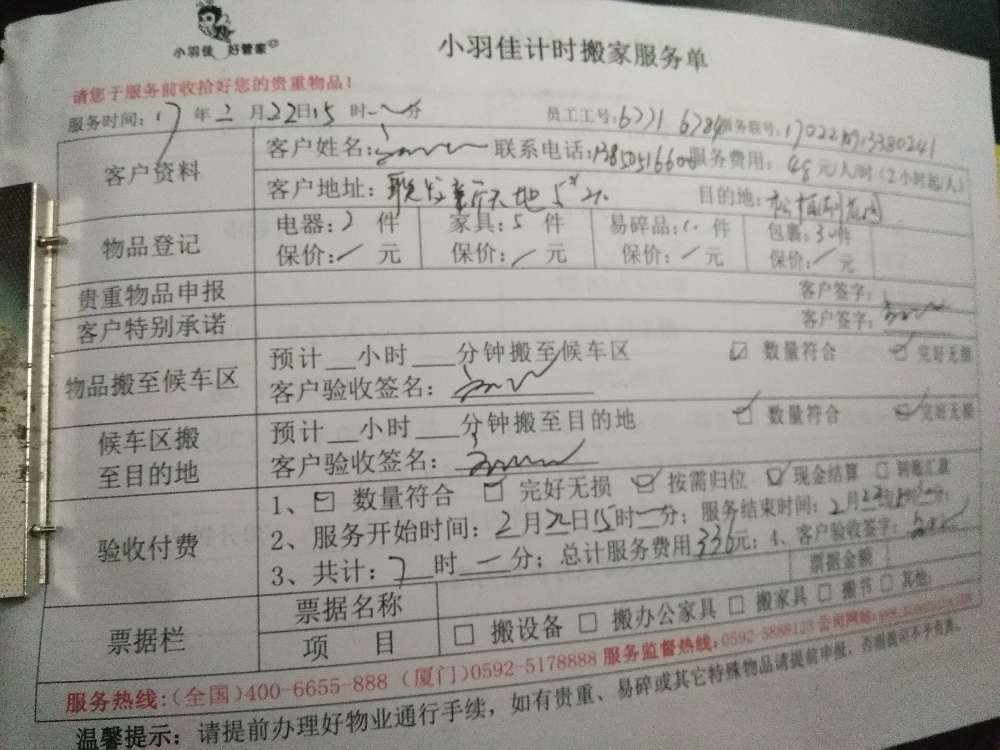 小羽佳 好管家
小羽佳计时搬家服务单
请您于服务前收拾好您的贵重物品！
服务时间：17年2月22日15时一分 员工工号：6771 6784 服务联号：
客户资料
客户姓名： 联系电话： 服务费用：48元/人/时（2小时起/人）
客户地址： 目的地：
物品登记
电器：2件 家具：5件 易碎品： 件 包裹：30件
保价：/元 保价：/元 保价：/元 保价：/元
贵重物品申报 客户签字：
客户特别承诺 客户签字：
物品搬至候车区
预计__小时___分钟搬至候车区 ☑ 数量符合 ☑ 完好无损
客户验收签名：
候车区搬
至目的地
预计__小时___分钟搬至目的地 ☑ 数量符合 ☑ 完好无损
客户验收签名：
验收付费
1、☑ 数量符合 ☑ 完好无损 ☑ 按需归位 ☑ 现金结算 □ 转账汇款
2、服务开始时间：2月22日15时一分；服务结束时间：2月22日
3、共计：7时一分；总计服务费用336元；4、客户验收签字：
票据栏
票据名称 票据金额
项 目 □ 搬设备 □ 搬办公家具 □ 搬家具 □ 搬书 □ 其他：
服务热线：（全国）400-6655-888 （厦门）0592-5178888 服务监督热线：0592-5888123 公司网站：
温馨提示：请提前办理好物业通行手续，如有贵重、易碎或其它特殊物品请提前申报，否则损坏不予负责。